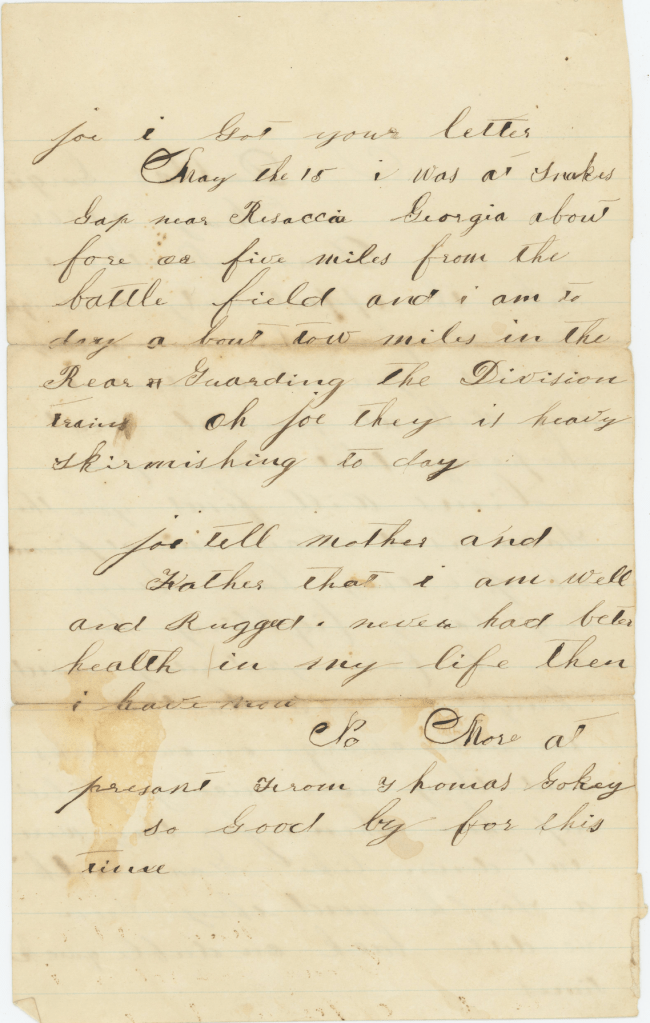 joe i Got your letter
May the 15 i was at Snakes
Gap near Resacca Georgia about
fore or five miles from the
battle field and i am to
day a bout tow miles in the
Rear Guarding the Division
train oh joe they is heavy
skirmishing to day
joe tell mother and
Father that i am well
and Rugged i never had beter
health in my life then
i have now
No More at
presant From Thomas Gokey
so Good by for this
time